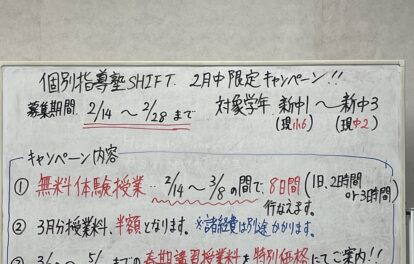 個別指導塾SHIFT. 2月中限定キャンペーン!!
募集期間 2/14 〜 2/28 まで 対象学年 新中1 〜 新中3
(現小6) (現中2)
キャンペーン内容
① 無料体験授業 … 2/14〜3/8の間で、8日間 (1日、2時間 or 3時間)
行なえます。
② 3月分授業料、半額となります。※諸経費は別途かかります。
までの春期講習授業料を特別価格にてご案内!!